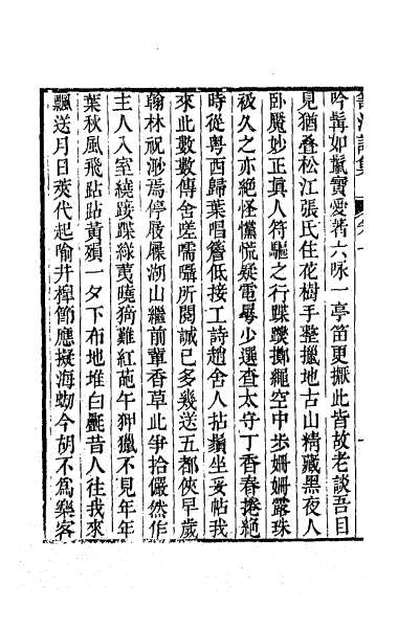 吟髯如戴寶愛著六咏一亭笛更撅此皆故老談吾目
見猶疊松江張氏住花樹手整攦地古山精藏黑夜人
卧魘妙正眞人符驅之行蹀躞擲繩空中步姍姍露珠
衱久之亦絶怪儻慌疑電晷少選查太守丁香春捲絶
時從粤西歸葉唱簷低接工詩趙舍人拈鬚坐妥帖我
來此數數傳舍嗟嚅囁所閱誠已多幾送五都俠早歲
翰林祝渺焉停屐屧湖山繼前軰香草此爭拾儼然作
主人入室繞䠟蹀綠萼曉猗難紅葩午狎獵不見年年
葉秋風飛跕跕黄殞一夕下布地堆白氎昔人往我來
飄送月日莢代起喻井椑節應擬海蛤今胡不爲樂客